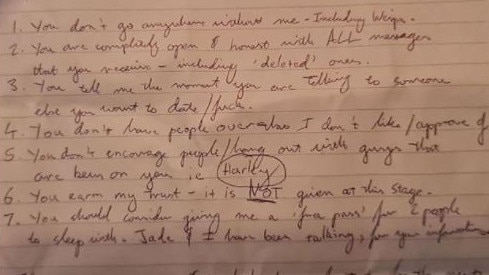 1. You don't go anywhere without me - Including Weigh.
2. You are completely open & honest with ALL messages
that you receive - including 'deleted' ones.
3. You tell me the moment you are talking to someone
else you want to date/fuck.
4. You don't have people over who I don't like/approve of
5. You don't encourage people/hang out with guys that
are keen on you ie Harley
6. You earn my trust - it is NOT given at this stage.
7. You should consider giving me a 'free pass' for 2 people
to sleep with. Jade & I have been talking, for your information